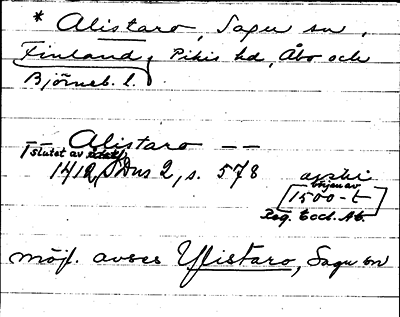 * Alistaro, Sagu sn,
Finland, Pikis hd, Åbo och
Björneb. l.
-- Alistaro --
[slutet av
1412, SDns 2, s. 578 avskr
början av
[1500-t]
Reg. Eccl. Ab.
möjl. avses Ylistaro, Sagu sn